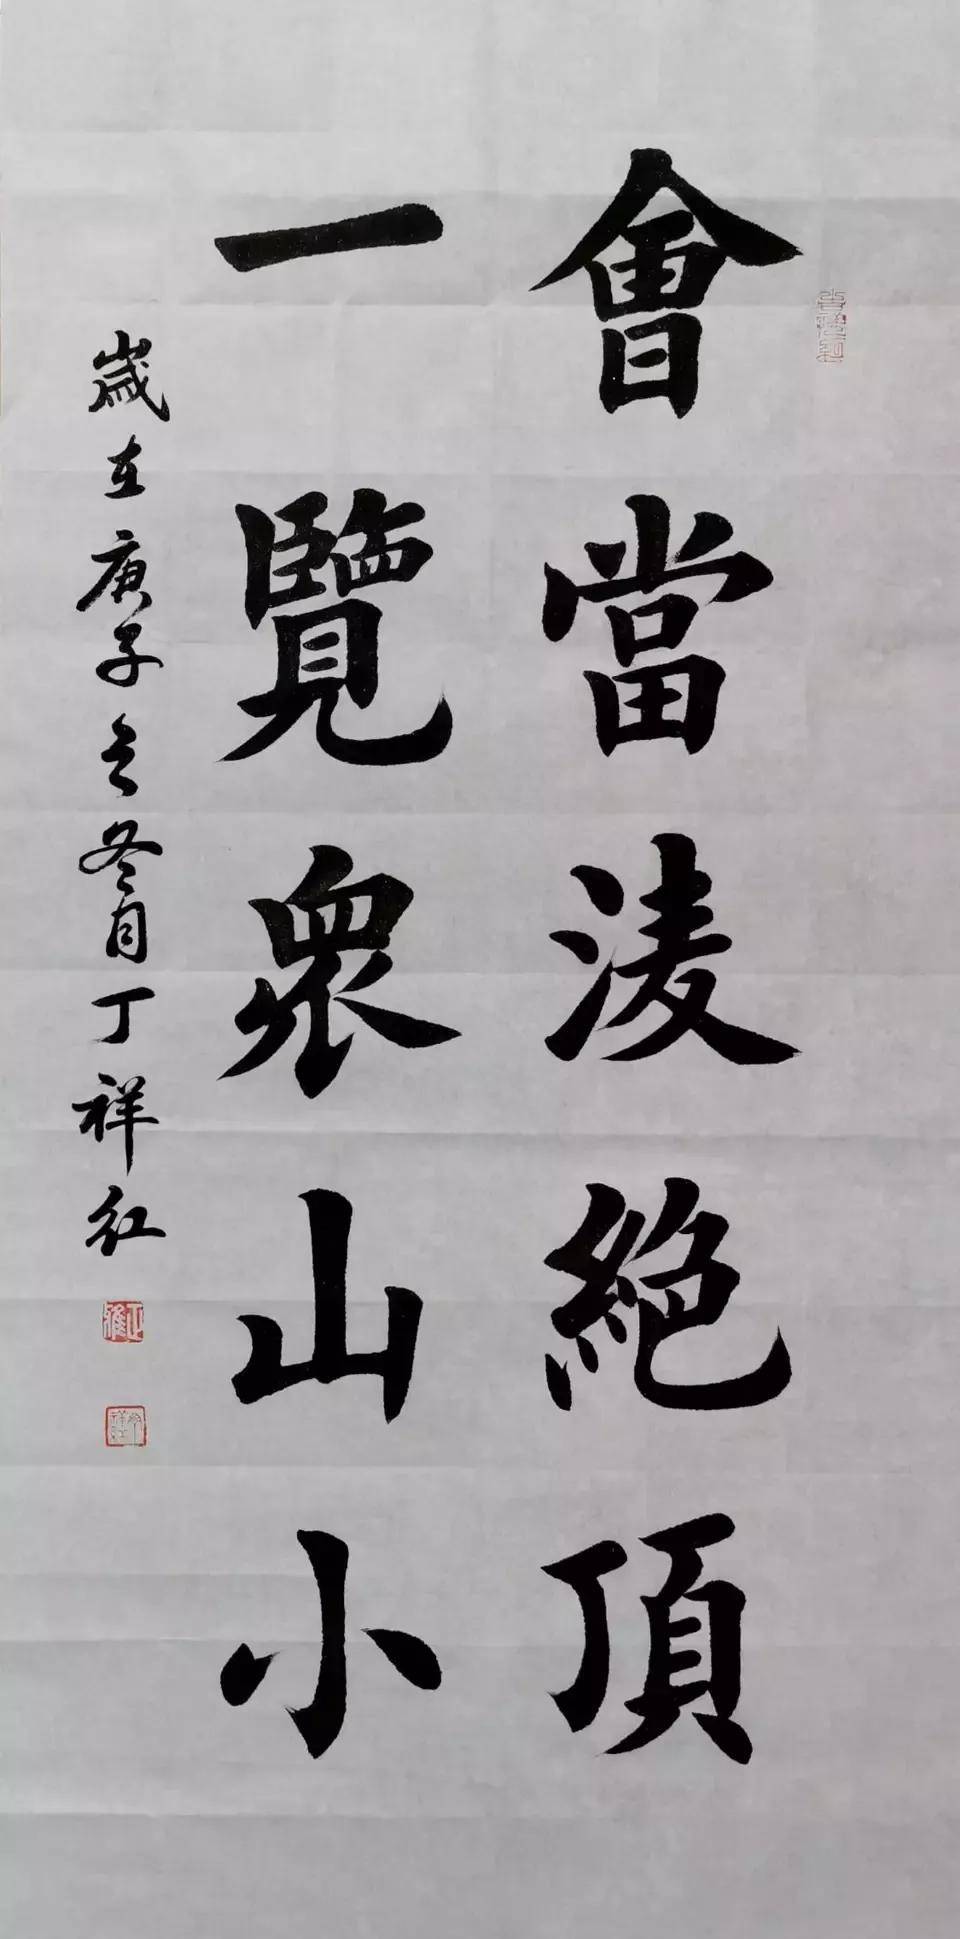 會當淩絕頂
一覽衆山小
歲在庚子之冬月丁祥红